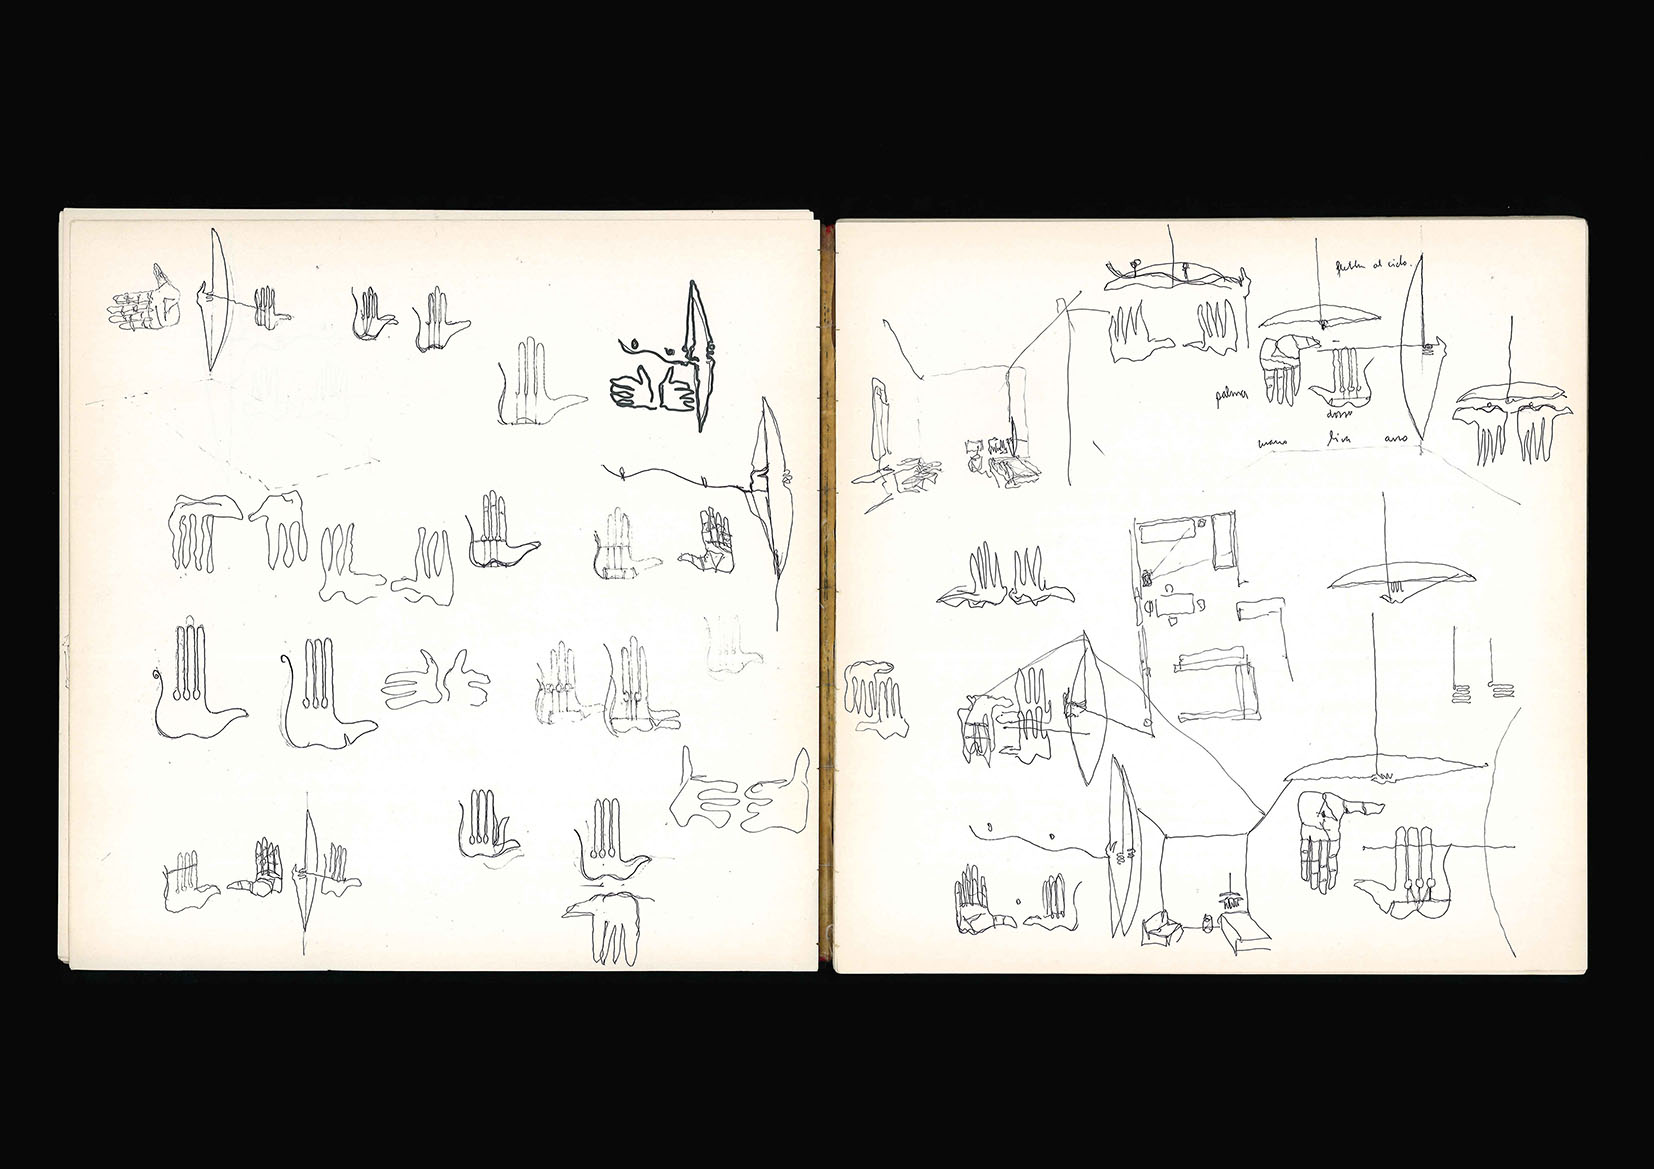 al cielo.
palma
dorso
mano lira arco